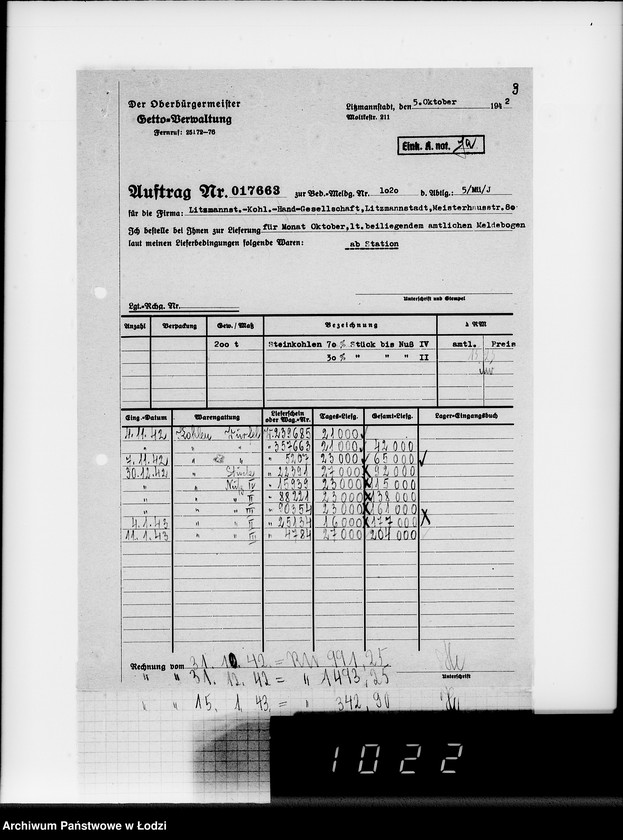 9
Der Oberbürgermeister
Getto-Verwaltung
Fernruf: 25172-76
Litzmannstadt, den 5. Oktober 1942
Moltkestr. 211
Eink. A. not.
Auftrag Nr. 017663 zur Bed.-Meldg. Nr. 1o2o d. Abtlg.: 5/Mü/J
für die Firma: Litzmannst.-Kohl.-Hand-Gesellschaft, Litzmannstadt, Meisterhausstr. 8o
Ich bestelle bei Ihnen zur Lieferung für Monat Oktober, lt. beiliegendem amtlichen Meldebogen
laut meinen Lieferbedingungen folgende Waren: ab Station
Unterschrift und Stempel
Lgt.-Rchg. Nr.
Anzahl Verpackung Gew./Maß Bezeichnung à RM
2oo t Steinkohlen 7o % Stück bis Nuß IV amtl. Preis
3o % " " " II
Eing.-Datum Warengattung Lieferschein oder Wag.-Nr. Tages-Liefg. Gesamt-Liefg. Lager-Eingangsbuch
4.11.42 Kohlen Würfel 239685 21000
" " " " 357663 21000 42000
7.11.42 " " 5207 23000 65000
30.12.42 " Stück " 22391 27000 92000
" " Nuß IV " 15939 23000 115000
" " " II " 88221 23000 138000
" " " III " 90354 23000 161000
4.1.43 " " II " 25134 16000 177000
11.1.43 " " III " 4784 27000 204000
Rechnung vom 31.10.42 = RM 991,25
" " 31.12.42 = " 1493,25
Unterschrift
" " 15.1.43 = " 342,90
1022
Archiwum Państwowe w Łodzi